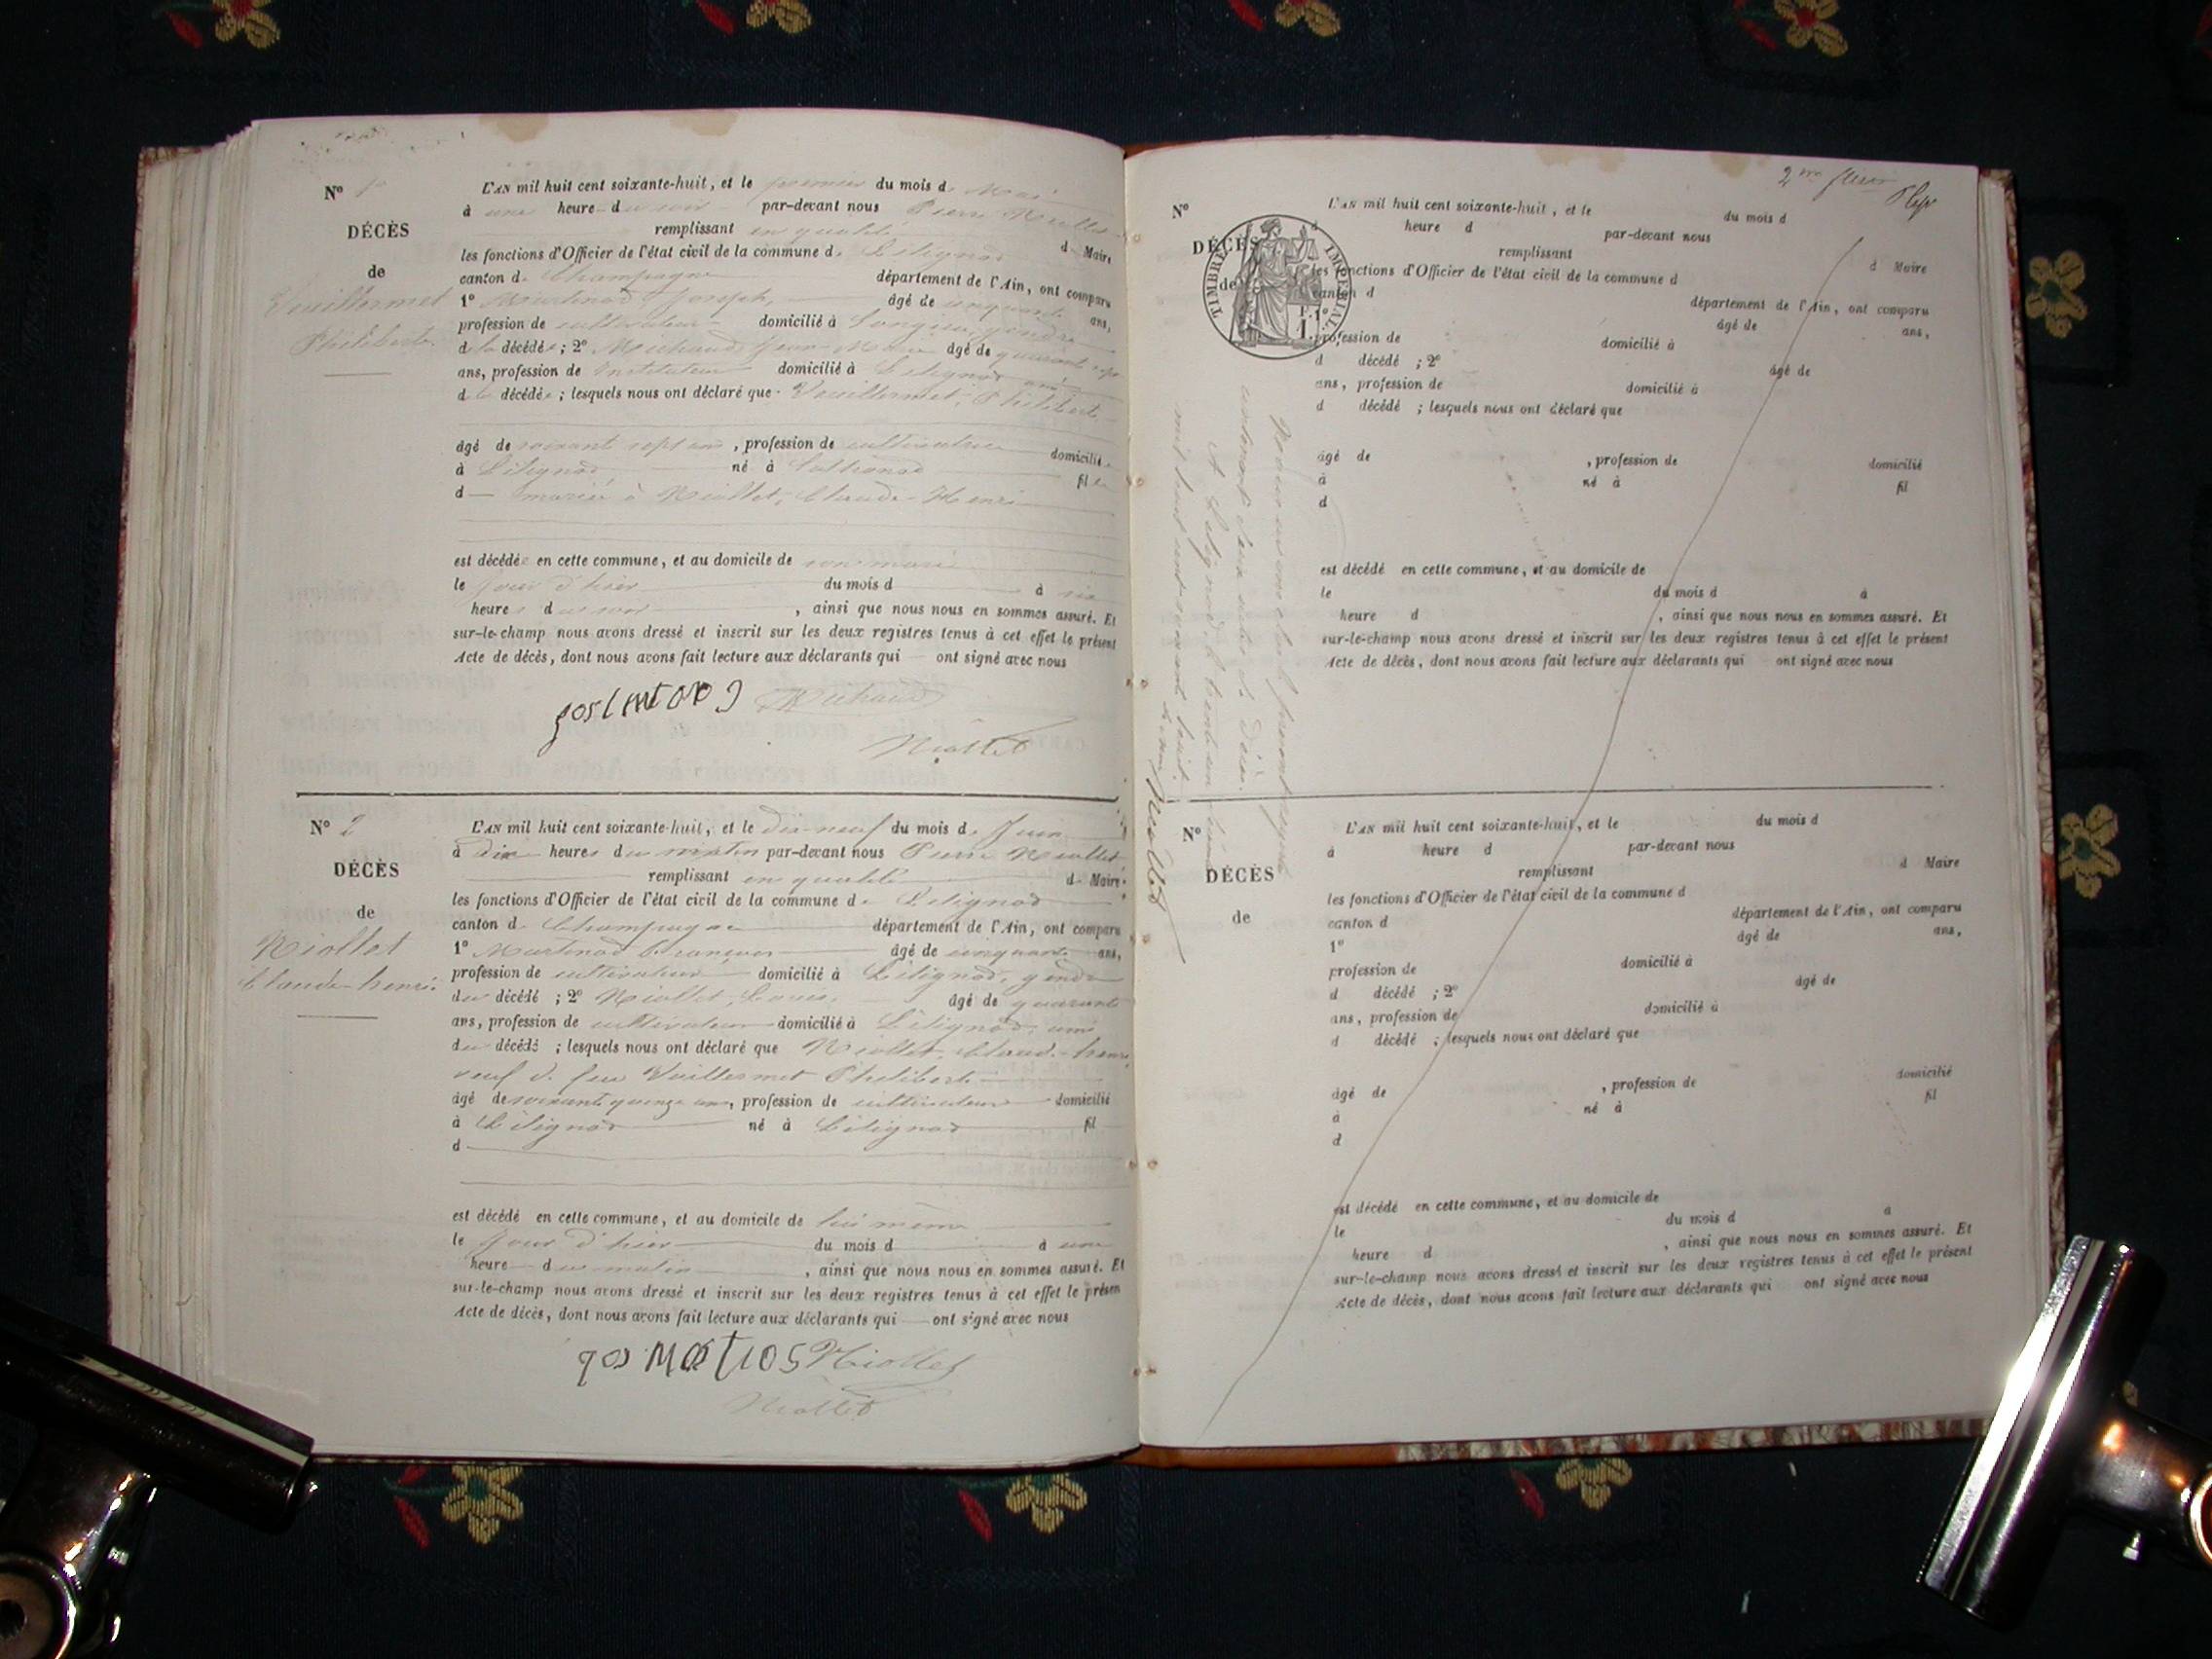 N° 1er
DÉCÈS
de
Vuillermet
Philiberte
L'AN mil huit cent soixante-huit, et le premier du mois de Mai
à une heure du soir par-devant nous Pierre Niollet
remplissant en qualité de Maire
les fonctions d'Officier de l'état civil de la commune de Lilignod
canton de Champagne département de l'Ain, ont comparu
1° Martinod Joseph, âgé de cinquante ans,
profession de cultivateur domicilié à Songieu, gendre
de la décédée ; 2° Michaud Jean-Marie âgé de quarante sept
ans, profession de Instituteur domicilié à Lilignod ami
de la décédée ; lesquels nous ont déclaré que Vuillermet, Philiberte
âgé de soixante sept ans, profession de cultivatrice domiciliée
à Lilignod, né à Sothonod fille
d mariée à Niollet, Claude-Henri
est décédée en cette commune, et au domicile de son mari
le jour d'hier du mois d à six
heures du soir, ainsi que nous nous en sommes assuré. Et
sur-le-champ nous avons dressé et inscrit sur les deux registres tenus à cet effet le présent
Acte de décès, dont nous avons fait lecture aux déclarants qui ont signé avec nous
Michaud
Niollet
N° 2
DÉCÈS
de
Niollet
Claude-henri
L'AN mil huit cent soixante-huit, et le dix-neuf du mois de Juin
à dix heures du matin par-devant nous Pierre Niollet
remplissant en qualité de Maire
les fonctions d'Officier de l'état civil de la commune de Lilignod
canton de Champagne département de l'Ain, ont comparu
1° Martinod François âgé de cinquante ans,
profession de cultivateur domicilié à Lilignod, gendre
du décédé ; 2° Niollet, Louis, âgé de quarante
ans, profession de cultivateur domicilié à Lilignod, ami
du décédé ; lesquels nous ont déclaré que Niollet, Claude-henri
veuf de feu Vuillermet Philiberte
âgé de soixante quinze ans, profession de cultivateur domicilié
à Lilignod né à Lilignod fil
d
est décédé en cette commune, et au domicile de lui même
le jour d'hier du mois d à une
heure du matin, ainsi que nous nous en sommes assuré. Et
sur-le-champ nous avons dressé et inscrit sur les deux registres tenus à cet effet le présen
Acte de décès, dont nous avons fait lecture aux déclarants qui ont signé avec nous
Niollet
Niollet
2me
N°
DÉCÈS
de
TIMBRE IMPÉRIAL
L'AN mil huit cent soixante-huit, et le du mois d
heure d par-devant nous
remplissant d Maire
les fonctions d'Officier de l'état civil de la commune d
canton d département de l'Ain, ont comparu
1° âgé de ans,
profession de domicilié à
d décédé ; 2° âgé de
ans, profession de domicilié à
d décédé ; lesquels nous ont déclaré que
âgé de , profession de domicilié
à né à fil
d
est décédé en cette commune, et au domicile de
le du mois d à
heure d , ainsi que nous nous en sommes assuré. Et
sur-le-champ nous avons dressé et inscrit sur les deux registres tenus à cet effet le présent
Acte de décès, dont nous avons fait lecture aux déclarants qui ont signé avec nous
contenant deux actes de Décès.
A Lilignod, le trente un
mil huit cent soixante huit.
Le Maire, Niollet
N°
DÉCÈS
de
L'AN mil huit cent soixante-huit, et le du mois d
à heure d par-devant nous
remplissant d Maire
les fonctions d'Officier de l'état civil de la commune d
canton d département de l'Ain, ont comparu
1° âgé de ans,
profession de domicilié à
d décédé ; 2° âgé de
ans, profession de domicilié à
d décédé ; lesquels nous ont déclaré que
âgé de , profession de domicilié
à né à fil
d
est décédé en cette commune, et au domicile de
le du mois d à
heure d , ainsi que nous nous en sommes assuré. Et
sur-le-champ nous avons dressé et inscrit sur les deux registres tenus à cet effet le présent
Acte de décès, dont nous avons fait lecture aux déclarants qui ont signé avec nous